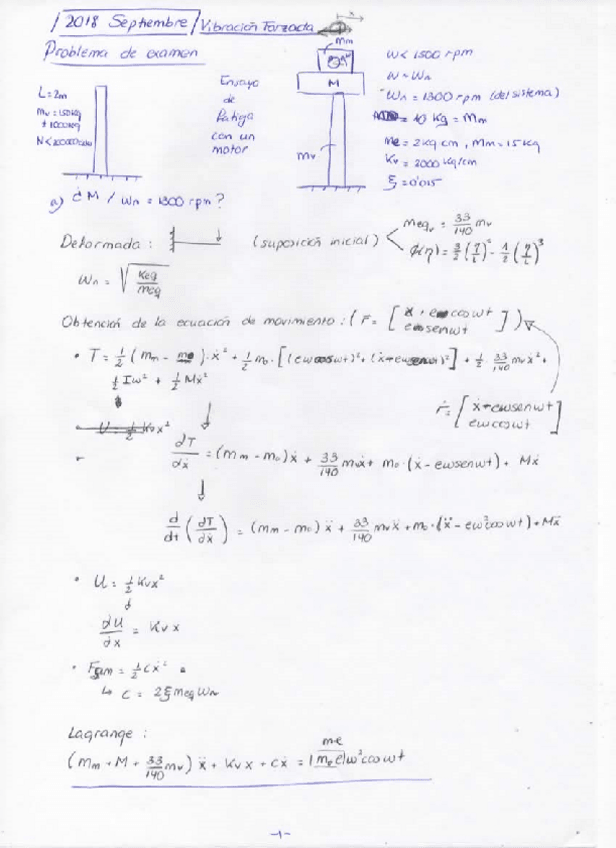 2018 Septiembre / Vibración Forzada
x
Problema de examen
Mm
M
mv
L = 2m
mv = 150kg
Ensayo
de
fatiga
con un
motor
w < 1500 rpm
w ~ wn
wn = 1300 rpm (del sistema)
10 kg = Mm
me = 2 kg cm, Mm = 15 kg
Kv = 2000 kg/cm
ξ = 0'015
a) ¿M / wn = 1300 rpm?
Deformada: (suposición inicial)
meqv = 33/140 mv
ϕ(η) = 3/2 (η/L)² - 1/2 (η/L)³
wn = √(Keq/meq)
Obtención de la ecuación de movimiento: ( r = [ x + e cos wt
e sen wt ] )
• T = 1/2 (mm - mo)·ẋ² + 1/2 mo·[(ew cos wt)² + (ẋ + ew sen wt)²] + 1/2 · 33/140 mv ẋ² +
1/2 Iw² + 1/2 Mẋ²
ṙ = [ ẋ + ew sen wt
ew cos wt ]
• U = 1/2 Kv x²
dT/dẋ = (Mm - mo) ẋ + 33/140 mv ẋ + mo·(ẋ - ew sen wt) + Mẋ
d/dt (dT/dẋ) = (Mm - mo) ẍ + 33/140 mv ẍ + mo·(ẍ - ew² cos wt) + Mẍ
• U = 1/2 Kv x²
dU/dx = Kv x
• Fam = 1/2 Cẋ²
↳ C = 2ξ meq wn
Lagrange:
me
(Mm + M + 33/140 mv) ẍ + Kv x + Cẋ = |mo e| w² cos wt
-1-